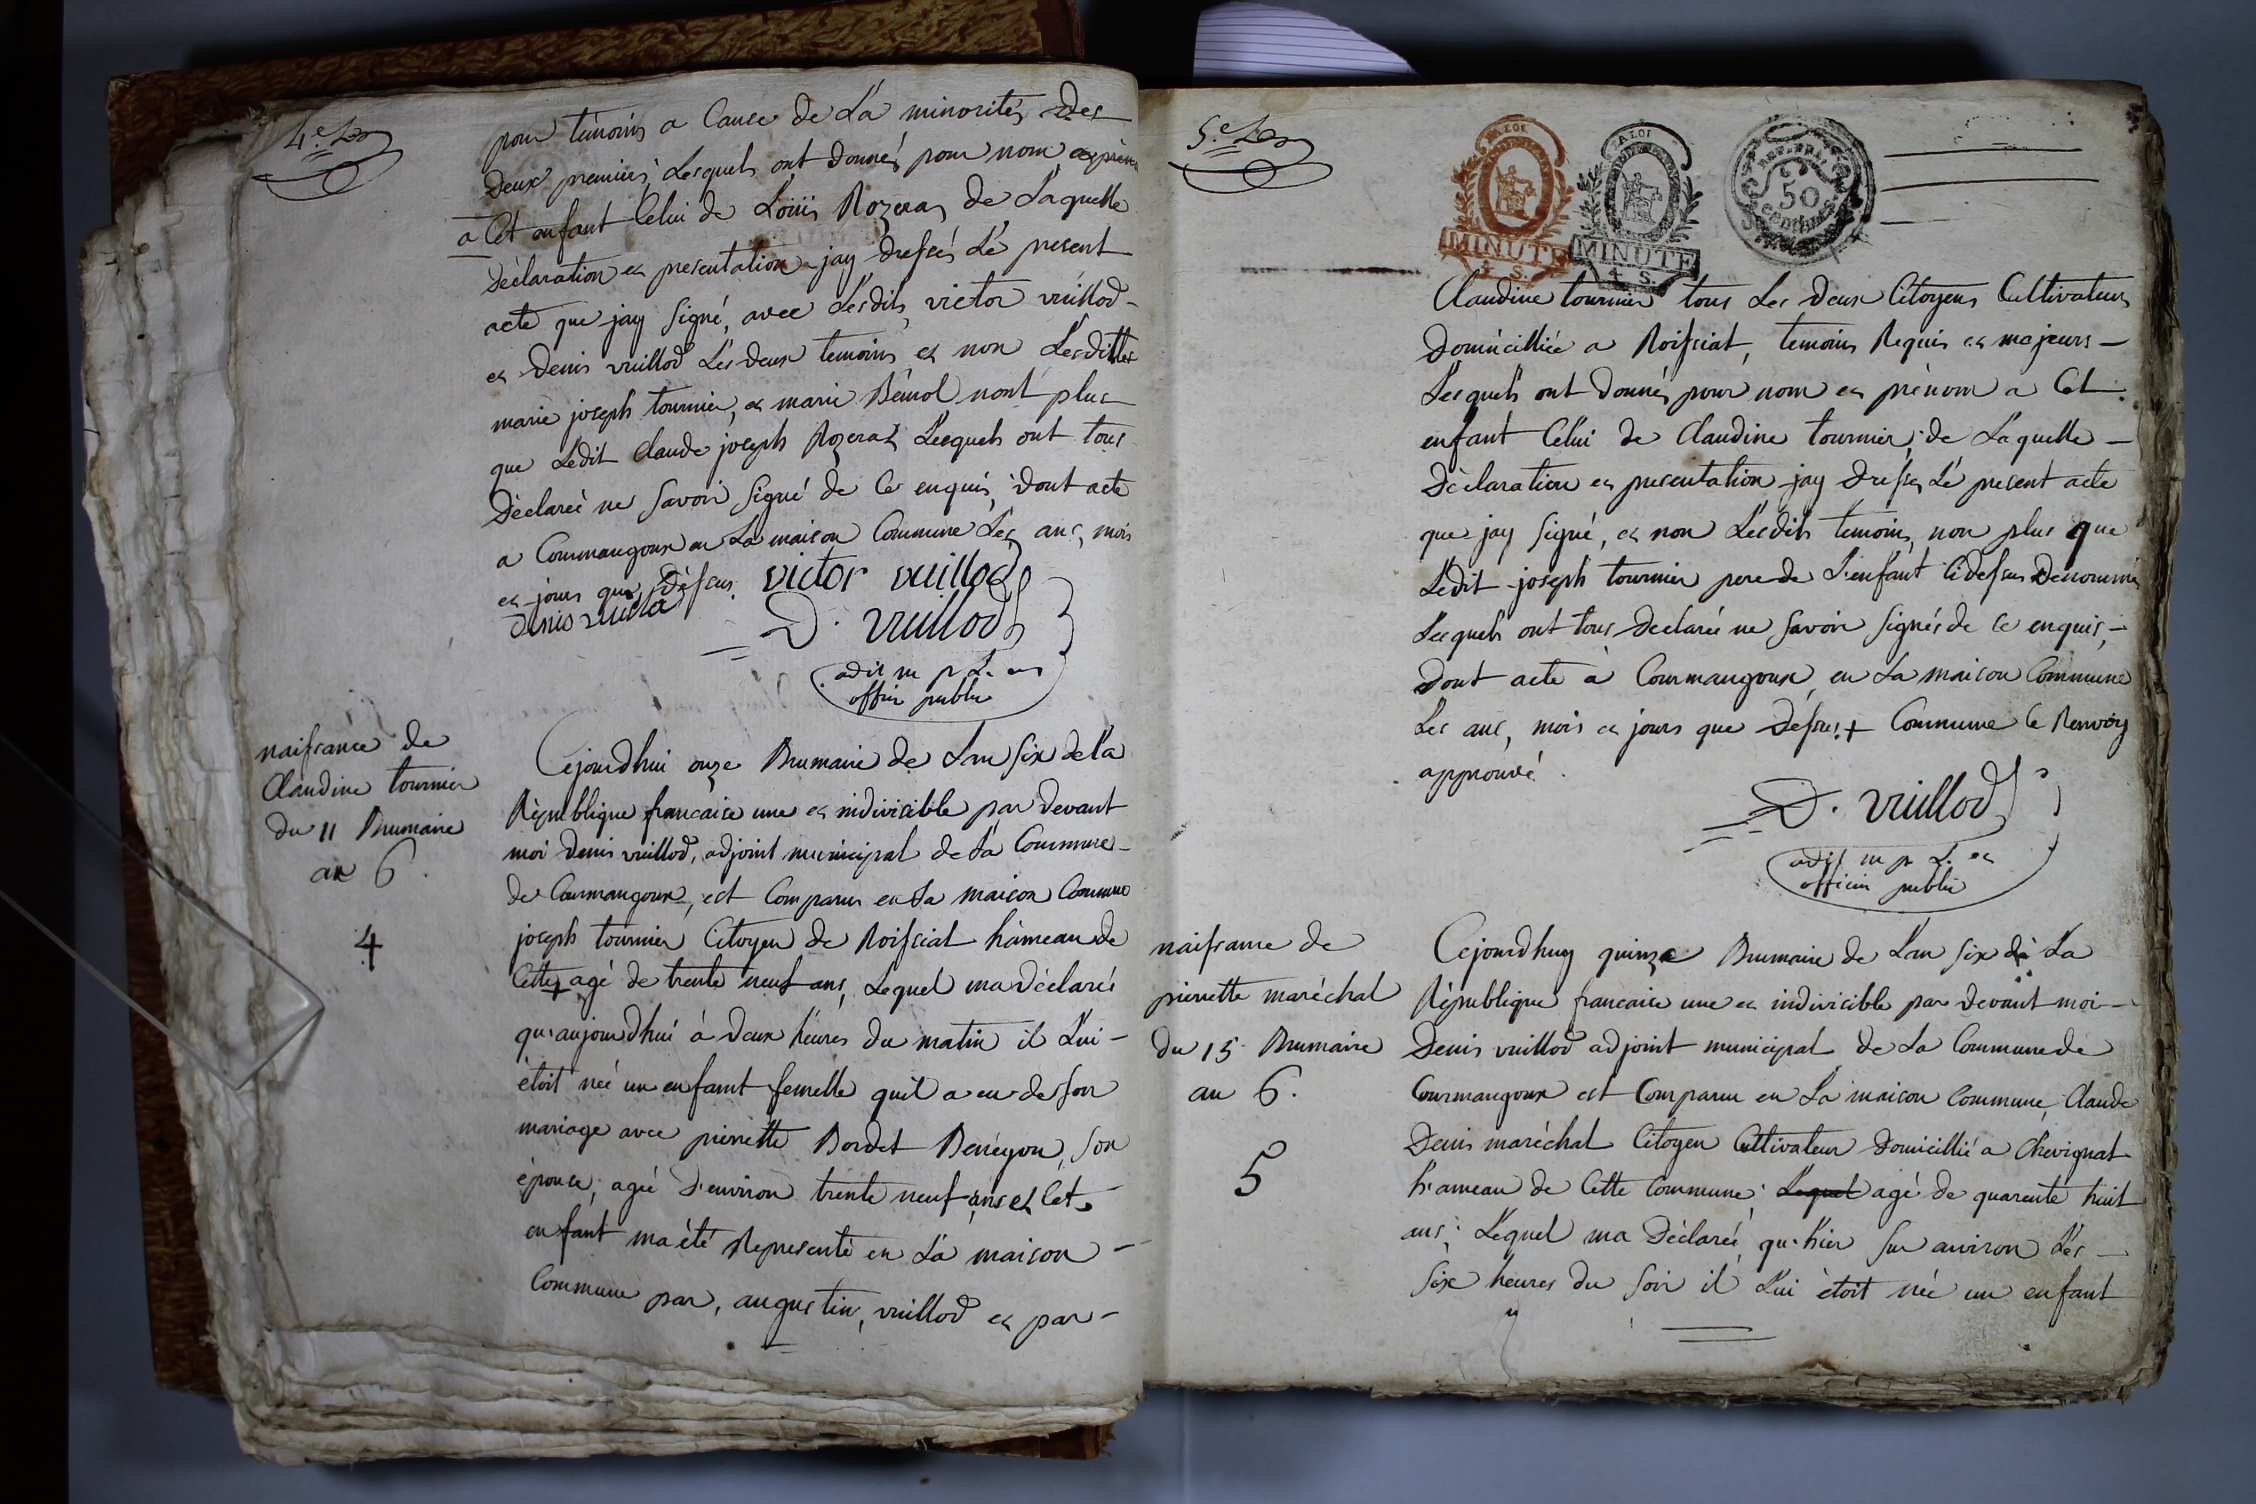 4.e
pour témoins a Cause de La minorités Des
Deux premiers, Lesquels ont donnés pour nom et prénom
a Cet enfant Celui de Loüis Rozeraz de Laquelle
Déclaration et presentation jay dressés Lé present
acte que jay signé, avec Lésdits victor vuillod
et Denis vuillod Lés deux temoins et non Lesdittes
marie joseph tournier, et marie Bénol nont plus
que Lédit Claude joseph Rozeraz Lesquels ont tous
Déclareé ne savoir signé de Ce enquis, Dont acte
a Courmangoux en La maison Commune Les ans, mois
et jours que Déssus. victor vuillod
denis vuillod
D. vuillod
adjt m p L. et
officier public
naissance de
Claudine tournier
du 11 Brumaire
an 6.
4
Cejourdhui onze Brumaire de Lan six de la
République francaise une et indivisible par devant
moi Denis vuillod, adjoint municipal de La Commune
de Courmangoux, est Comparus en La maison Commune
joseph tournier Citoyen de Roissiat hameau de
Cette + agé de trente neuf ans, Lequel ma déclarés
qu'aujourdhui à deux heures du matin il Lui
étoit née un enfant femelle quil a eu de son
mariage avec pierrette Bordet Benégon, son
épouse, ageé d'environ trente neuf ans et Cet
enfant ma été Representé en La maison
Commune par, augustin, vuillod et par
5.e
A LOI
MINUTE
4 S.
A LOI
MINUTE
4 S.
REP. FRA.
50
centimes
Claudine tournier tous Les deux Citoyens Cultivateurs
Domicilliée a Roissiat, temoins Requis et majeurs
Lesquels ont donnés pour nom et prénom a Cet
enfant Celui de Claudine tournier, de Laquelle
Déclaration et presentation jay dressés Lé present acte
que jay signé, et non Lésdits temoins, non plus que
Lédit joseph tournier pere de L'enfant Cidessus Dénommé
Lesquels ont tous declareé ne savoir signés de Ce enquis,
Dont acte à Courmangoux, en La maison Commune
Les ans, mois et jours que dessus. + Commune Ce Renvoy
approuvé.
D. vuillod
adjt m p L. et
officier public
naissance de
pierrette maréchal
du 15 Brumaire
an 6.
5
Cejourdhuy quinze Brumaire de Lan six de La
République francaise une et indivicible par devant moi
Denis vuillod adjoint municipal de La Commune de
Courmangoux est Comparu en La maison Commune, Claude
Denis maréchal Citoyen Cultivateur Domicillié a Chevignat
hameau de Cette Commune, Lequel agé de quarente huit
ans, Lequel ma Déclareé qu'hier sur environ Les
six heures du soir il Lui étoit née un enfant